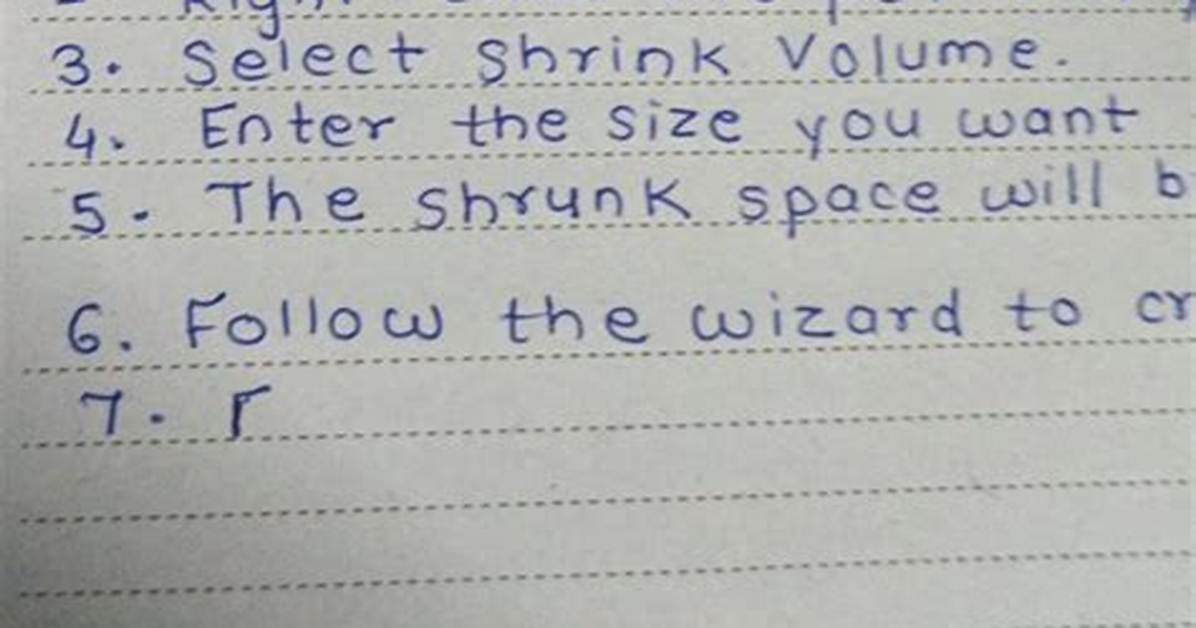 3. Select Shrink Volume.
4. Enter the size you want
5. The shrunk space will b
6. Follow the wizard to cr
7.